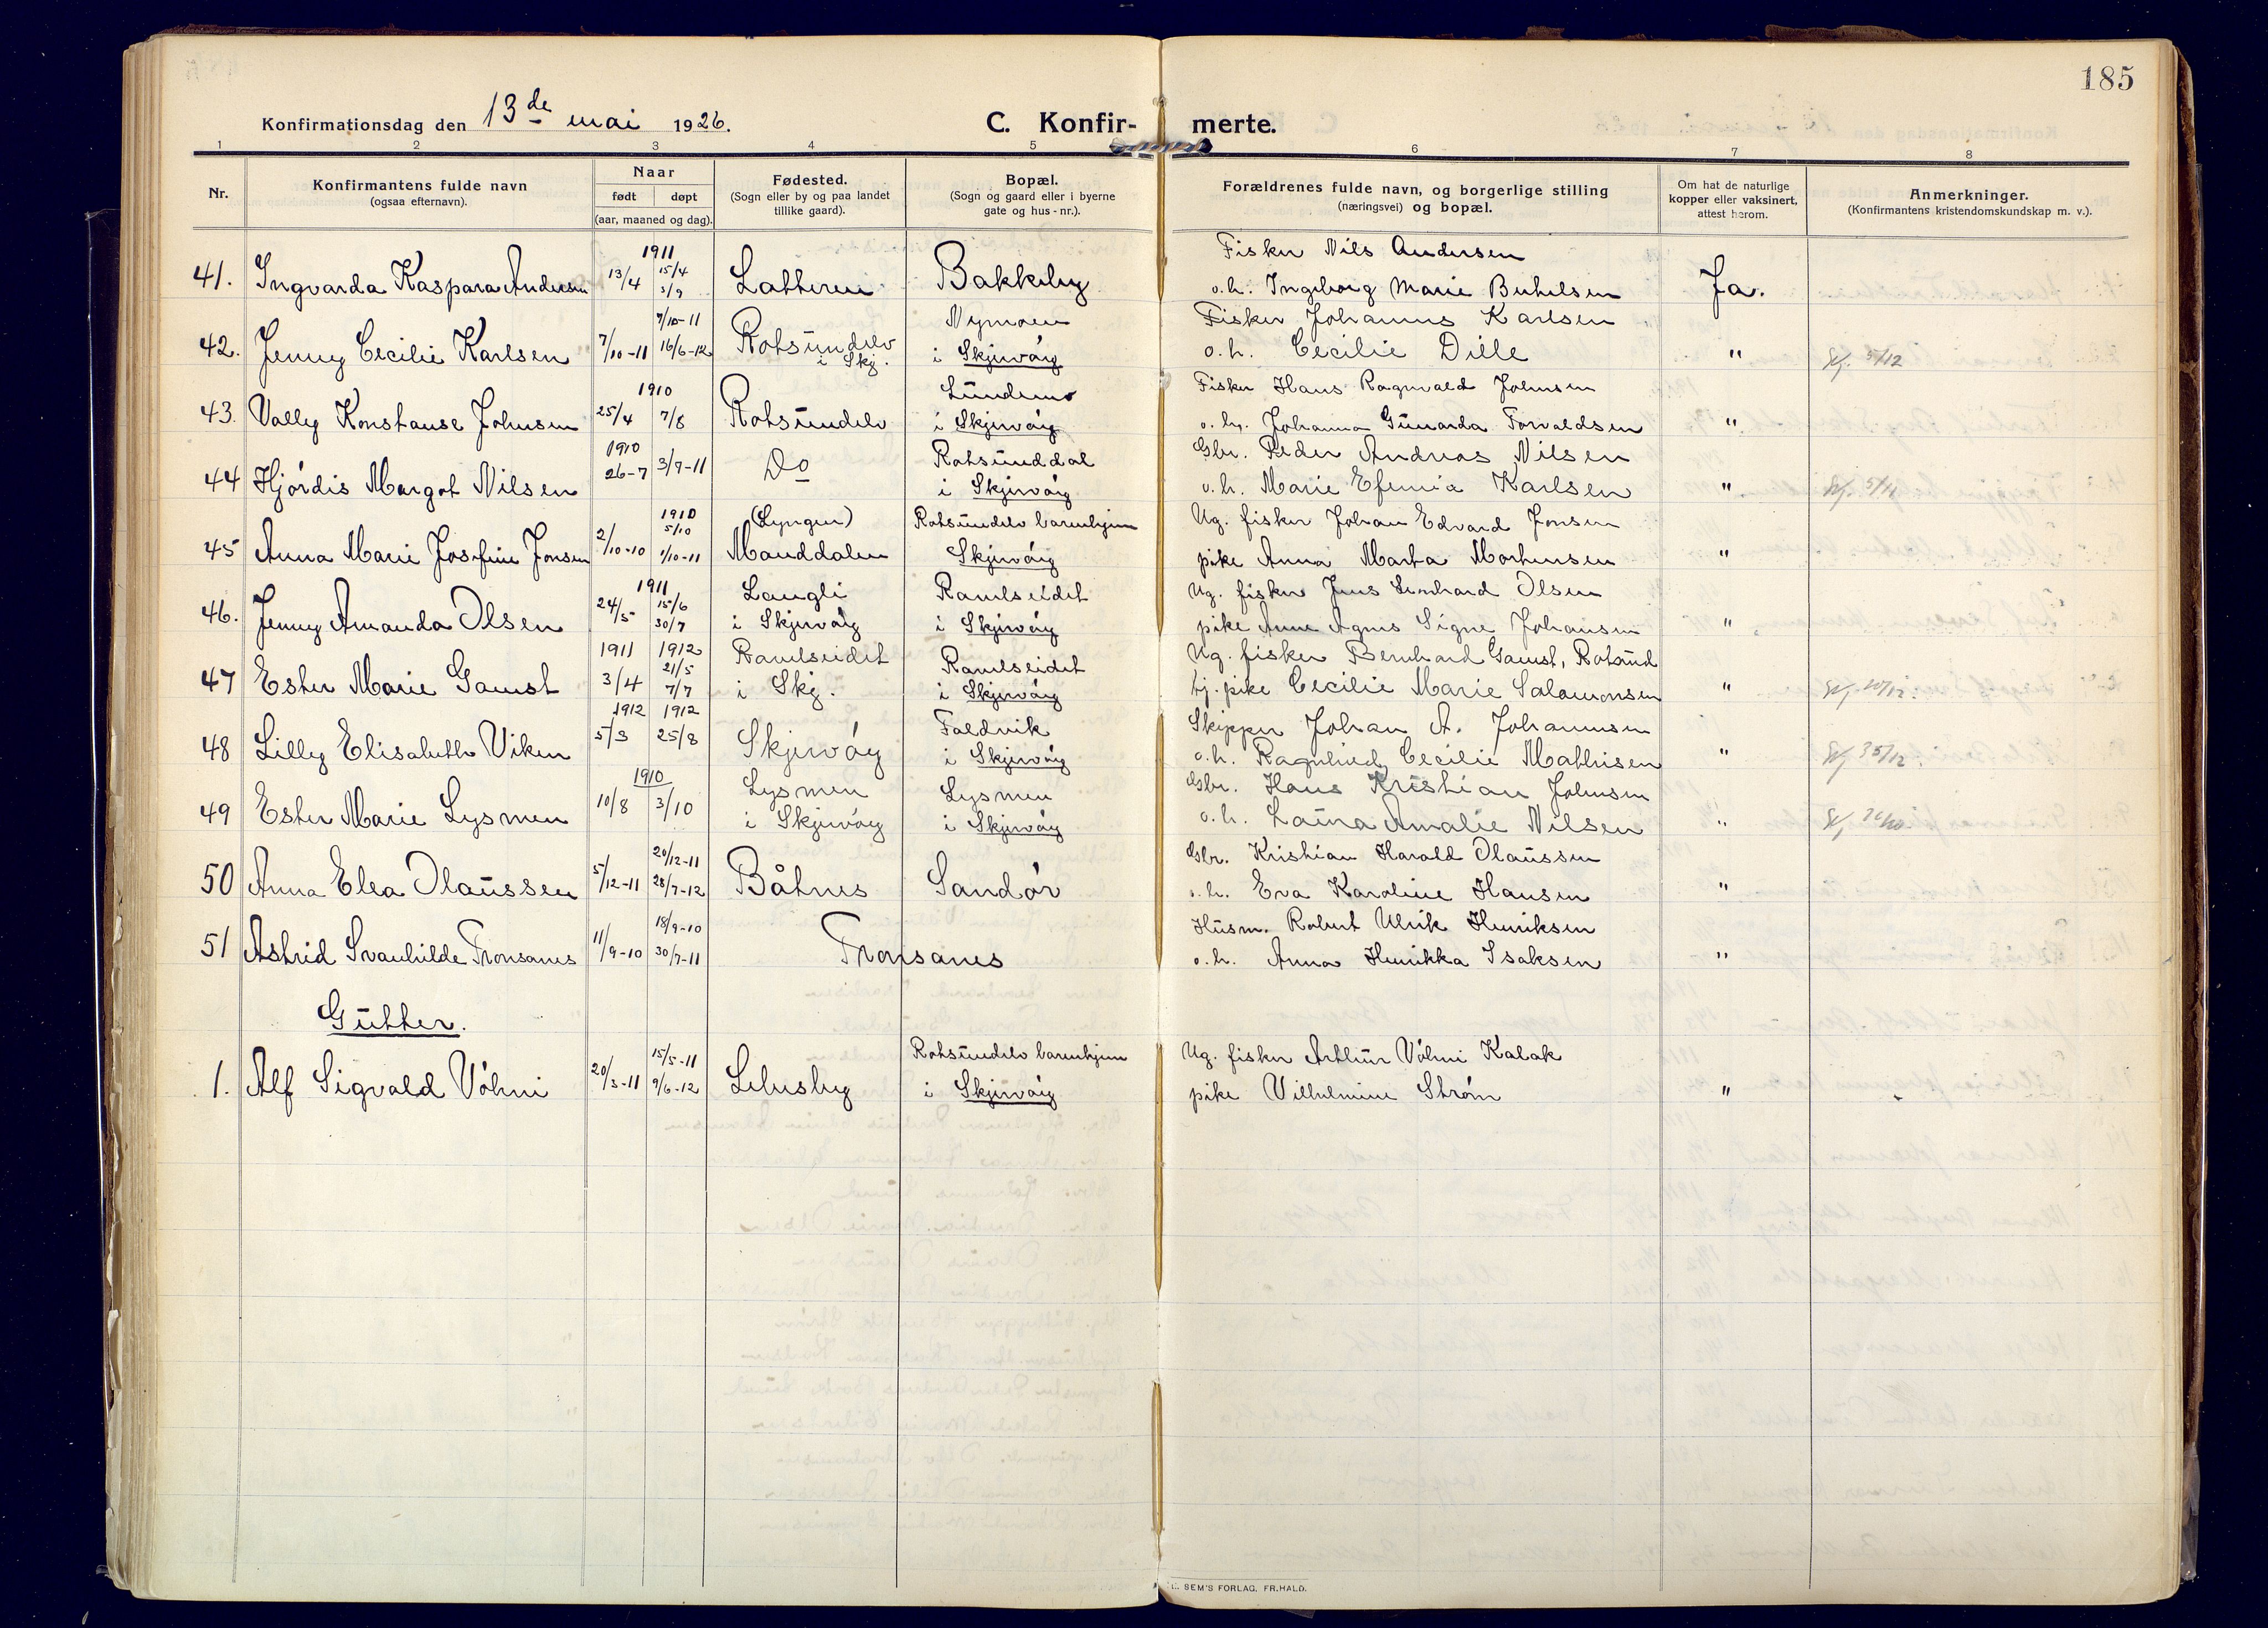 185
Konfirmationsdag den 13de mai 1926.
C. Konfir- merte.
1 2 3 4 5 6 7 8
Nr.
Konfirmantens fulde navn
(ogsaa efternavn).
Naar
født døpt
(aar, maaned og dag).
Fødested.
(Sogn eller by og paa landet
tillike gaard).
Bopæl.
(Sogn og gaard eller i byerne
gate og hus-nr.).
Forældrenes fulde navn, og borgerlige stilling
(næringsvei) og bopæl.
Om hat de naturlige
kopper eller vaksinert,
attest herom.
Anmerkninger.
(Konfirmantens kristendomskundskap m. v.).
1911 Fisker Nils Andersen
41. Ingvarda Kaspara Andersen 13/4 15/4 3/9 Latteren Bakkeby o.h. Ingeborg Marie Bertelsen Ja.
7/10-11 Nymoen Fisker Johannes Karlsen
42. Jenny Cecilie Karlsen 7/10-11 16/6-12 Rotsundelv i Skj. i Skjervöy o.h. Cecilie Dille " Skj. 5/12
1910 Lundemo Fisker Hans Ragnvald Johnsen
43. Vally Konstanse Johnsen 25/4 7/8 Rotsundelv i Skjervöy o.h. Johanna Gunarda Torvaldsen "
1910 Rotsunddal Gbr. Peder Andreas Nilsen
44 Hjördis Margot Nilsen 26-7 3/9-11 Do i Skjervöy o.h. Marie Efemia Karlsen " Skj. 5/11
1910 5/10 (Lyngen) Rotsundelv barnehjem Ug. fisker Johan Edvard Jonsen
45 Anna Marie Josefine Jonsen 2/10-10 1/10-11 Manddalen Skjervöy pike Anna Marta Mortensen "
1911 Langli Ravelseidet Ug. fisker Jens Leonhard Olsen
46. Jenny Amanda Olsen 24/5 15/6 30/7 i Skjervöy i Skjervöy pike Anne Agnes Signe Johansen "
1911 1912 Ravelseidet Ravelseidet Ug. fisker Bernhard Gamst, Rotsund
47 Ester Marie Gamst 3/4 21/5 7/7 i Skj. i Skjervöy tj. pike Cecilie Marie Salamonsen "
1912 1912 Faldvik Skipper Johan A. Johannesen
48 Lilly Elisabeth Viken 5/3 25/8 Skjervöy i Skjervöy o.h. Ragnhild Cecilie Mathisen "
1910 Lysmen Lysmen Gbr. Hans Kristian Johnsen
49 Ester Marie Lysmen 10/8 3/10 i Skjervöy i Skjervöy o.h. Laina Amalie Nilsen "
20/12-11 Gbr. Kristian Harald Olaussen
50 Anna Elea Olaussen 5/12-11 28/7-12 Båtnes Sandör o.h. Eva Karoline Hansen "
18/9-10 Husm. Robert Ulrik Henriksen
51 Astrid Svanhilde Tronsanes 11/9-10 30/7-11 Tronsanes o.h. Anna Henrikka Isaksen "
Gutter.
15/5-11 Rotsundelv barnehjem Ug. fisker Arthur Völmi Kalak
1. Alf Sigvald Völmi 20/3-11 9/6-12 Lebesby i Skjervöy pike Vilhelmine Ström "
SEM'S FORLAG, FR.HALD.